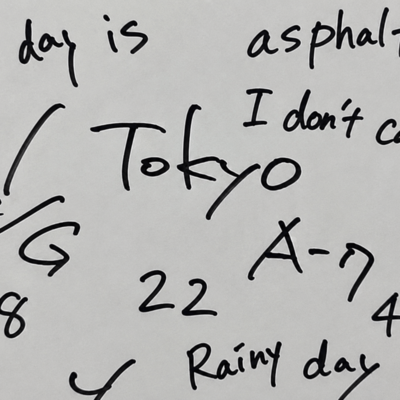 day is
asphal
I don't
Tokyo
G
A-n
8
22
4
Rainy day